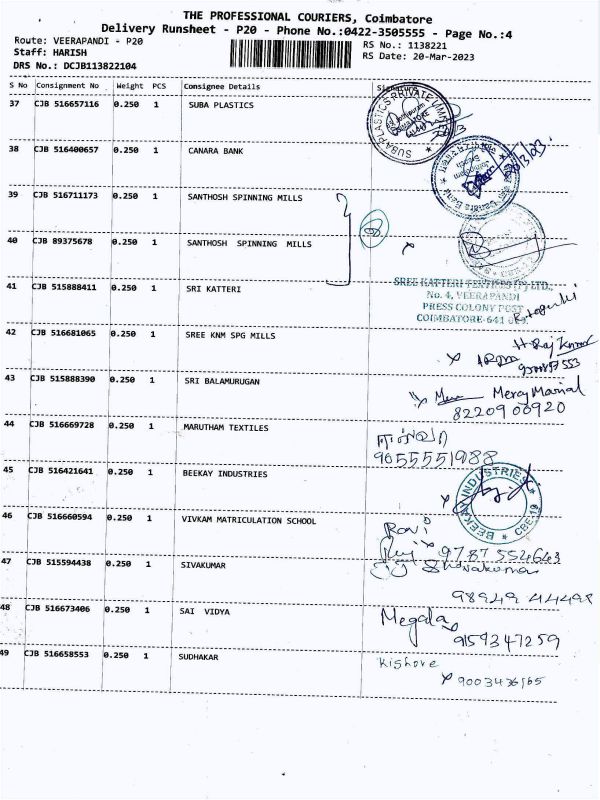 THE PROFESSIONAL COURIERS, Coimbatore
Delivery Runsheet - P20 - Phone No.:0422-3505555 - Page No.:4
Route: VEERAPANDI - P20
RS No.: 1138221
Staff: HARISH
RS Date: 20-Mar-2023
DRS No.: DCJB113822104
S No Consignment No Weight PCS Consignee Details
37 CJB 516657116 0.250 1 SUBA PLASTICS
SUBA PLASTICS PRIVATE LIMITED
38 CJB 516400657 0.250 1 CANARA BANK
39 CJB 516711173 0.250 1 SANTHOSH SPINNING MILLS
40 CJB 89375678 0.250 1 SANTHOSH SPINNING MILLS
41 CJB 515888411 0.250 1 SRI KATTERI
SREE KATTERI TEXTILES (P) LTD.,
No. 4, VEERAPANDI
PRESS COLONY POST
COIMBATORE-641 019.
42 CJB 516681065 0.250 1 SREE KNM SPG MILLS
H. Raj Kumar
43 CJB 515888390 0.250 1 SRI BALAMURUGAN
Mercy Marial
8220900920
44 CJB 516669728 0.250 1 MARUTHAM TEXTILES
9655551988
45 CJB 516421641 0.250 1 BEEKAY INDUSTRIES
BEEKAY INDUSTRIES CBE-19
46 CJB 516660594 0.250 1 VIVKAM MATRICULATION SCHOOL
Ravi
9787554643
47 CJB 515594438 0.250 1 SIVAKUMAR
Sivakumar
98949 44498
48 CJB 516673406 0.250 1 SAI VIDYA
Megala
9159347259
49 CJB 516658553 0.250 1 SUDHAKAR
Kishore
9003436565